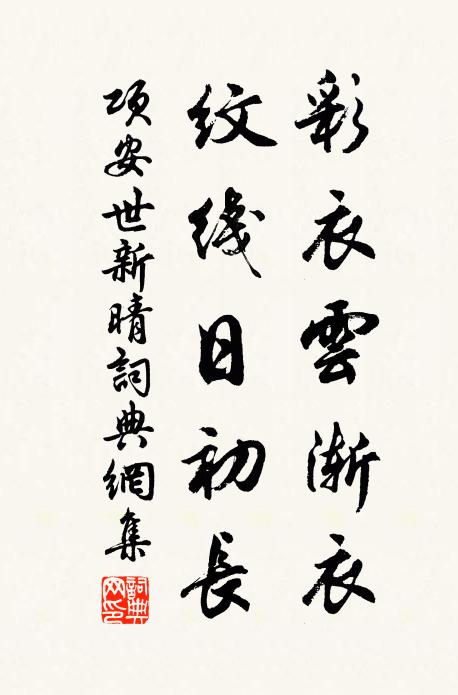 彩衣雲漸衣
紋线日初長
項安世新晴詞典網集
詞典网印